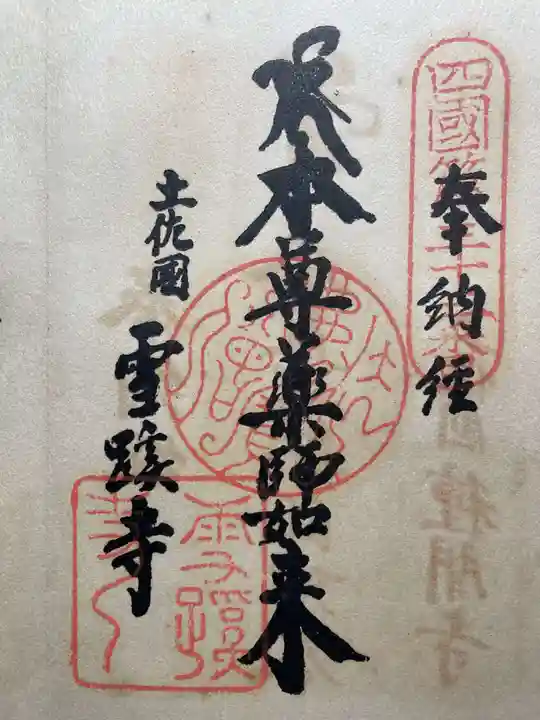 四國第三十三番
奉納経
本尊薬師如来
土佐國
雪蹊寺
雪蹊寺